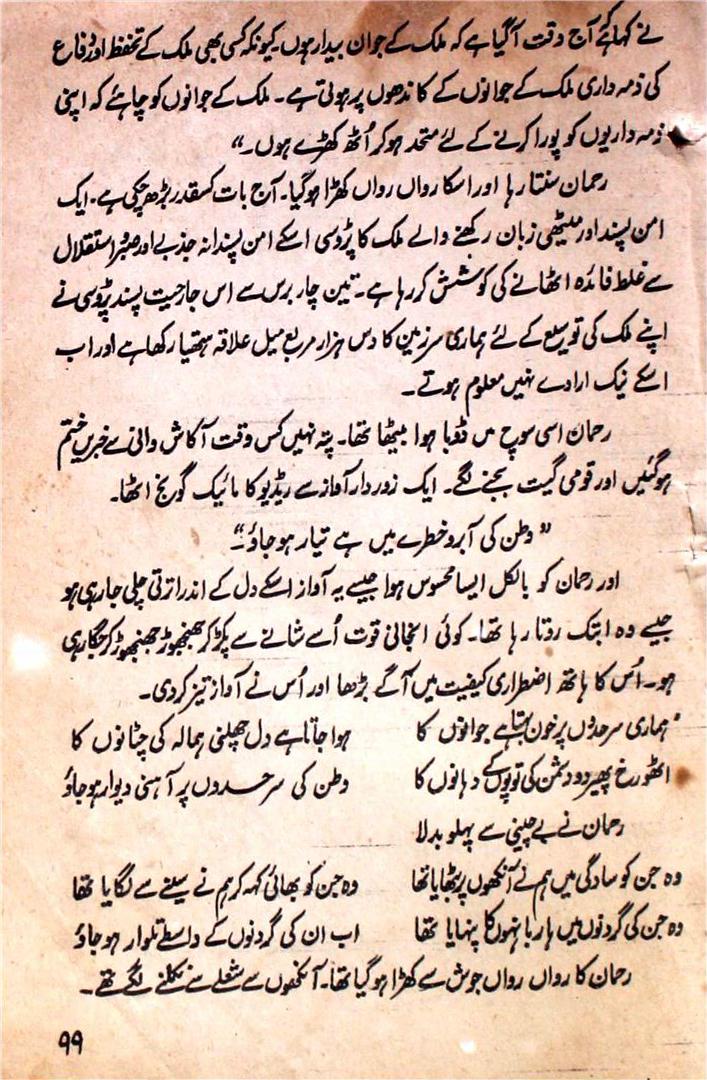 نے کہا ہے آج وقت آ گیا ہے کہ ملک کے جوان بیدار ہوں۔ کیونکہ کسی بھی ملک کے تحفظ اور دفاع
کی ذمہ داری ملک کے جوانوں کے کاندھوں پر ہوتی ہے۔ ملک کے جوانوں کو چاہئے کہ اپنی
ذمہ داریوں کو پورا کرنے کے لئے متحد ہو کر اُٹھ کھڑے ہوں۔"
رحمان سنتا رہا اور اسکا رواں رواں کھڑا ہو گیا۔ آج بات کسقدر بڑھ چکی ہے۔ ایک
امن پسند اور میٹھی زبان رکھنے والے ملک کا پڑوسی اسکے امن پسندانہ جذبے اور صبر و استقلال
سے غلط فائدہ اٹھانے کی کوشش کر رہا ہے۔ تین چار برس سے اس جارحیت پسند پڑوسی نے
اپنے ملک کی توسیع کے لئے ہماری سرزمین کا دس ہزار مربع میل علاقہ ہتھیا رکھا ہے اور اب
اسکے نیک ارادے نہیں معلوم ہوتے۔
رحمان اسی سوچ میں ڈوبا ہوا بیٹھا تھا۔ پتہ نہیں کس وقت آکاش وانی سے خبریں ختم
ہو گئیں اور قومی گیت بجنے لگے۔ ایک زور دار آواز سے ریڈیو کا مائیک گونج اٹھا۔
"وطن کی آبرو خطرے میں ہے تیار ہو جاؤ۔"
اور رحمان کو بالکل ایسا محسوس ہوا جیسے یہ آواز اسکے دل کے اندر اترتی چلی جا رہی ہو
جیسے وہ ابتک روتا رہا تھا۔ کوئی انجانی قوت اُسے شانے سے پکڑ کر جھنجھوڑ جھنجھوڑ کر جگا رہی
ہو۔ اُس کا ہاتھ اضطراری کیفیت میں آگے بڑھا اور اُس نے آواز تیز کر دی۔
ہماری سرحدوں پر خون بہتا ہے جوانوں کا ہوا جاتا ہے دل چھلنی ہمالہ کی چٹانوں کا
اٹھو رخ پھیر دو دشمن کی توپوں کے دہانوں کا وطن کی سرحدوں پر آہنی دیوار ہو جاؤ
رحمان نے بے چینی سے پہلو بدلا
وہ جن کو سادگی میں ہم نے آنکھوں پر بٹھایا تھا وہ جن کو بھائی کہہ کر ہم نے سینے سے لگایا تھا
وہ جن کی گردنوں میں ہار بانہوں کا پہنایا تھا اب ان کی گردنوں کے واسطے تلوار ہو جاؤ
رحمان کا رواں رواں جوش سے کھڑا ہو گیا تھا۔ آنکھوں سے شعلے سے نکلنے لگے تھے۔
۹۹